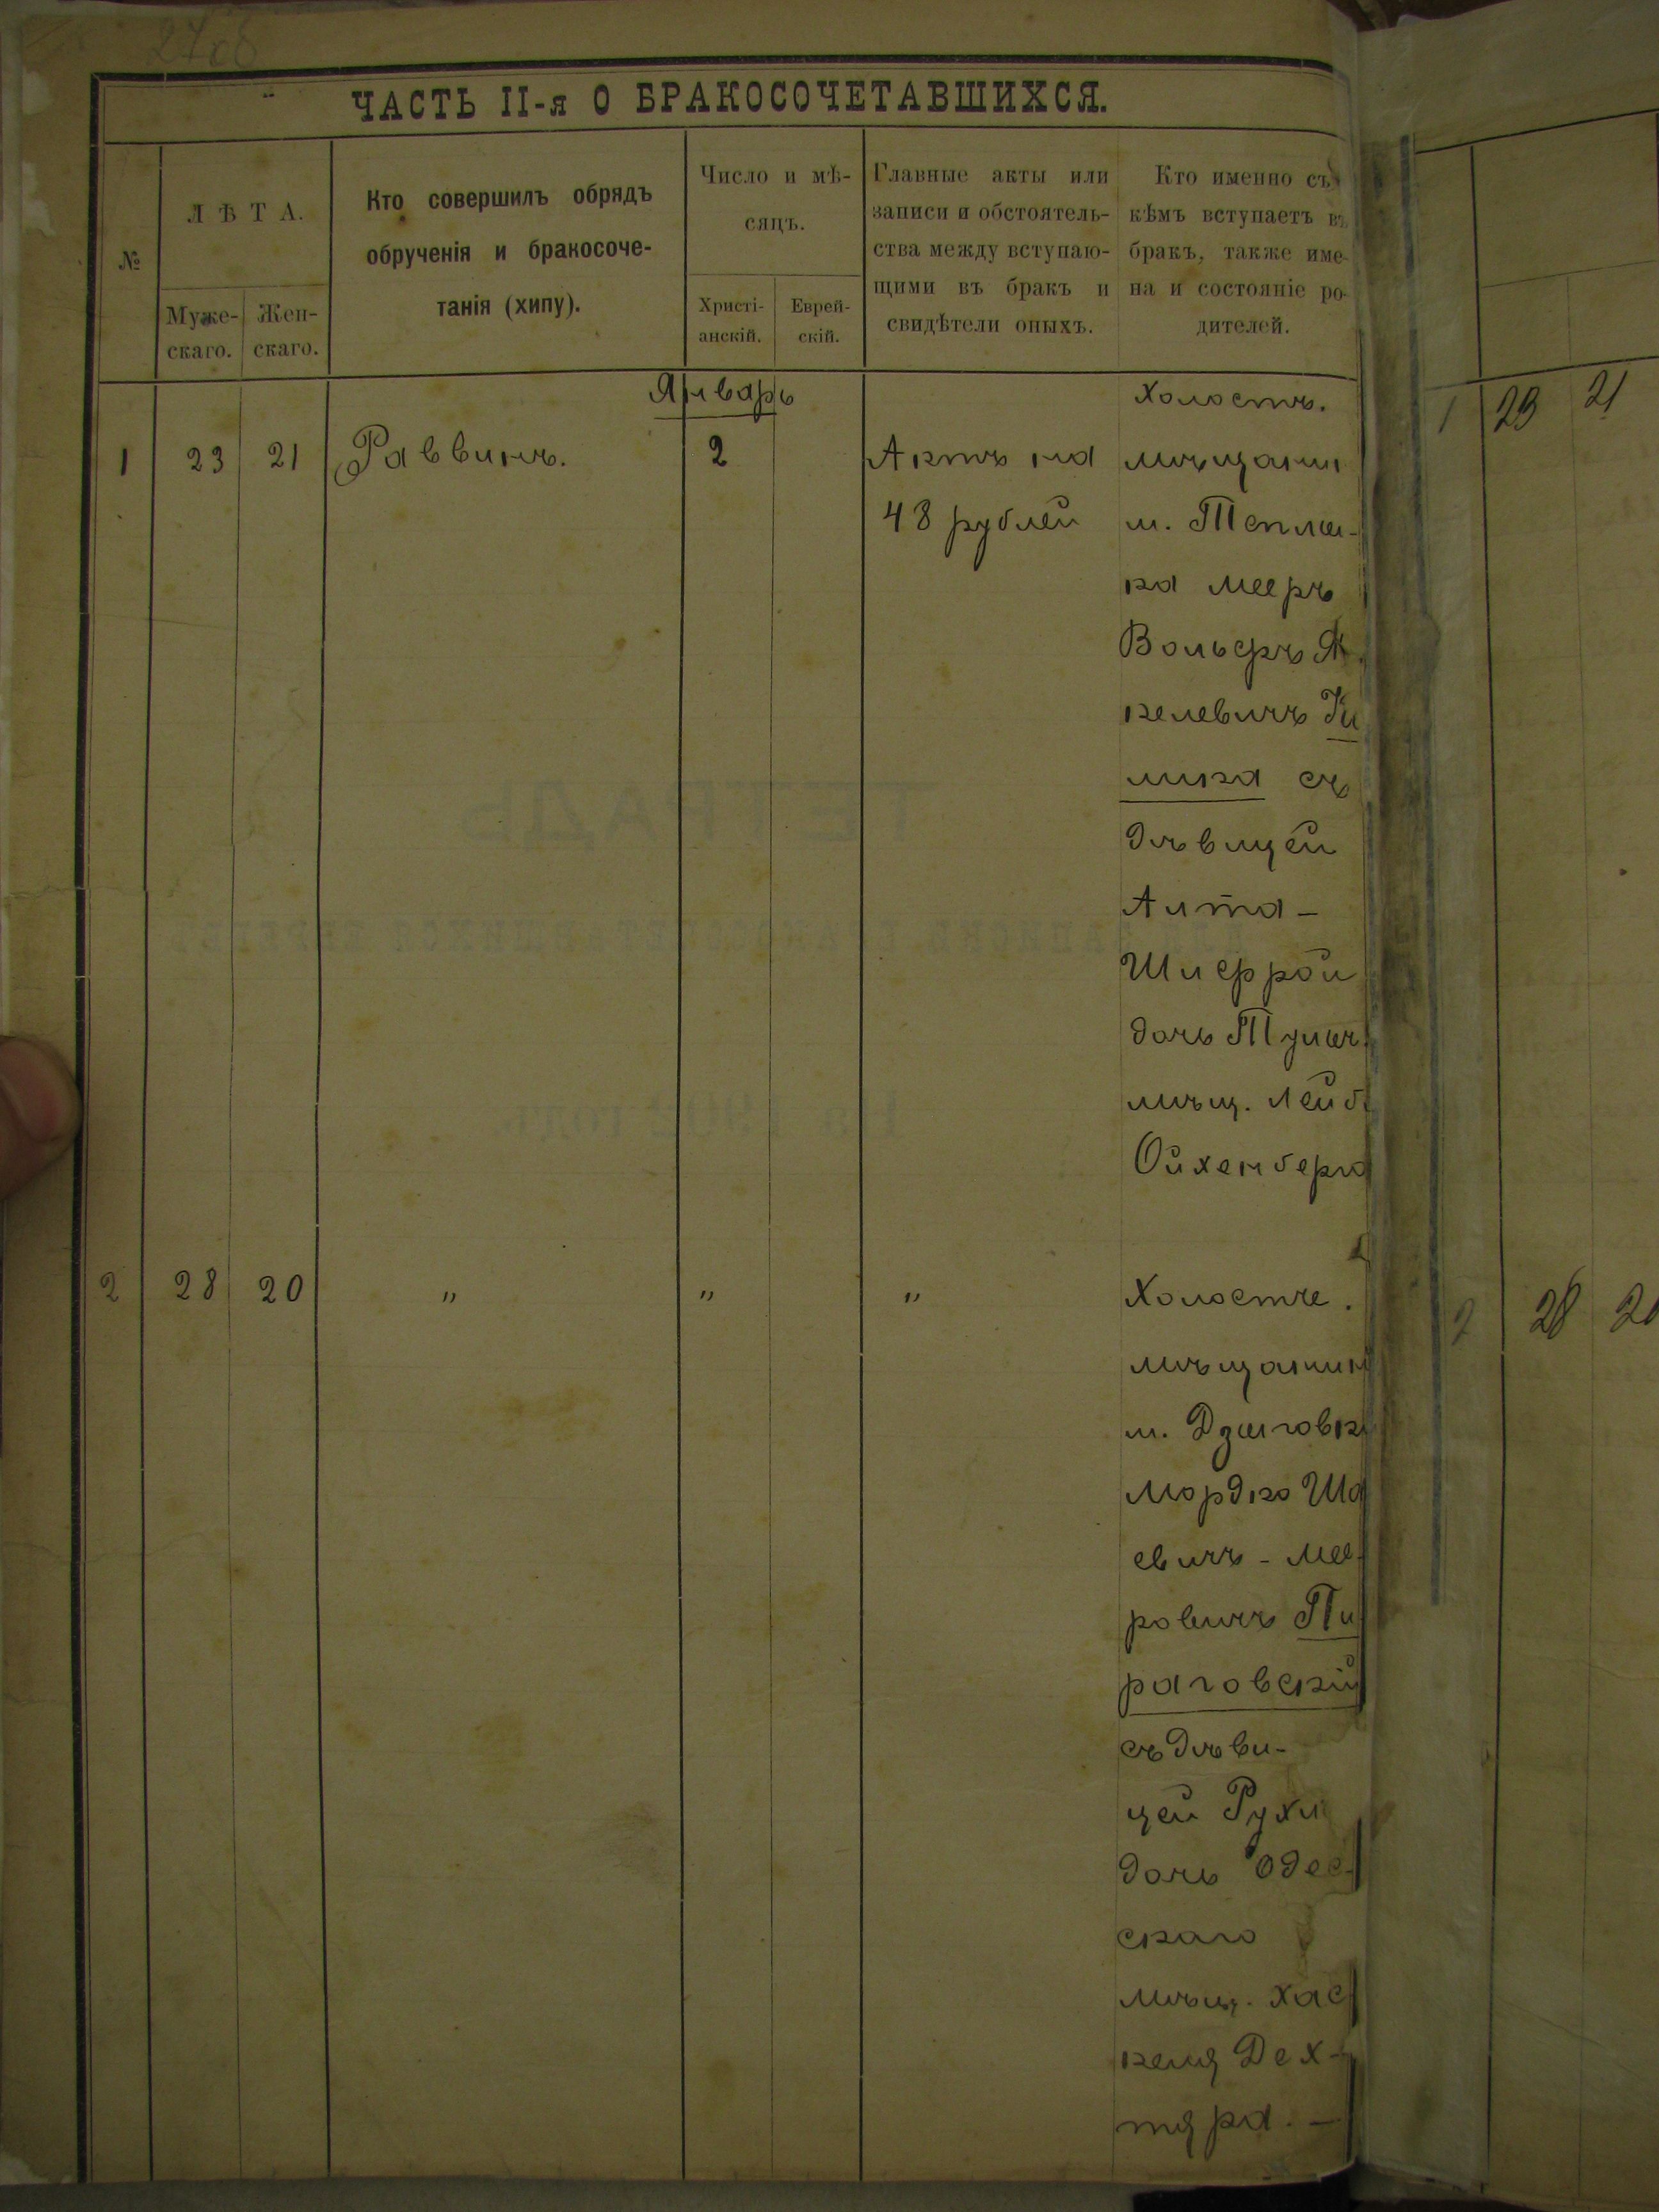 ЧАСТЬ II-я О БРАКОСОЧЕТАВШИХСЯ.
№
ЛѢТА.
Муже-
скаго.
Жен-
скаго.
Кто совершилъ обрядъ
обрученія и бракосоче-
танія (хипу).
Число и мѣ-
сяцъ.
Христі-
анскій.
Еврей-
скій.
Главные акты или
записи и обстоятель-
ства между вступаю-
щими въ бракъ и
свидѣтели оныхъ.
Кто именно съ
кѣмъ вступаетъ въ
бракъ, также име-
на и состояніе ро-
дителей.
Январь
1 23 21 Раввинъ. 2
Актъ на
48 рублей
Холостъ.
мѣщанин
м. Теплы-
ка Мееръ
Вольфъ
келевичъ
лика съ
дѣвицей
Алта-
Шифрой
дочь Тульч
мѣщ. Лейб
Ойхенберга
2 28 20 " " "
Холосте.
мѣщанин
м. Дзыговк
Мордко Ша
евичъ - Мее-
ровичъ Пи
раговскій
съ дѣви-
цей Рухл
дочь Одес-
скаго
мѣщ. Хас
келя Дех-
тяра. -
1 23 21
2 28 20